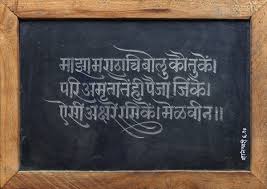 माझा मराठाचि बोलु कौतुकें।
परि अमृतातेंही पैजा जिंके।
ऐसीं अक्षरें रसिकें। मेळवीन॥
ज्ञानेश्वरी ६.१४